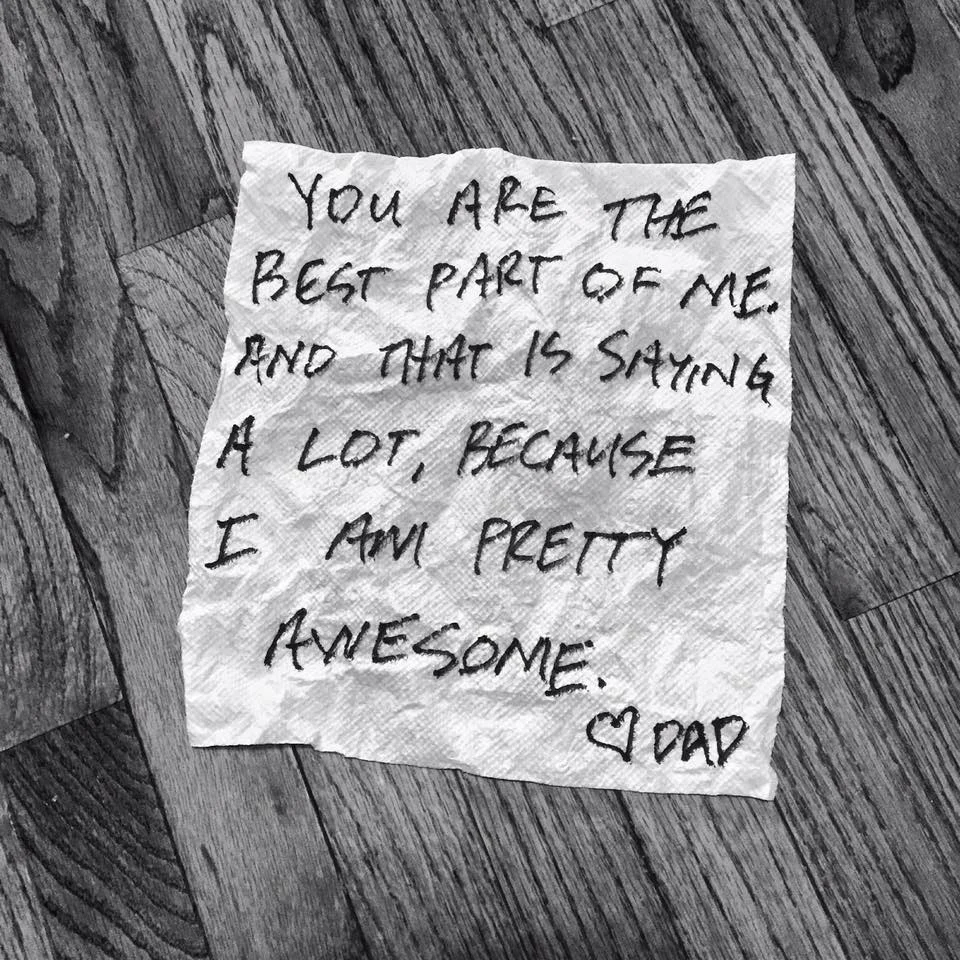 YOU ARE THE
BEST PART OF ME.
AND THAT IS SAYING
A LOT, BECAUSE
I AM PRETTY
AWESOME.
♡ DAD